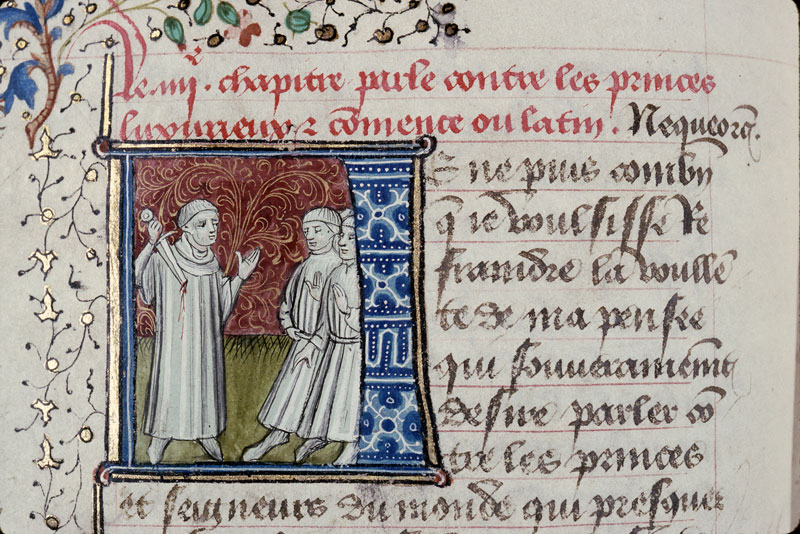 Le .iiij. chapitre parle contre les princes
luxurieux ⁊ cōmence ou latin . Nequeo rc̃.
E ne puis combñ
q̄ ie voulsisse Re
fraindre la voullē
te de ma pensee
qui souuerainemēt
desire parler cō
tre les princes
et seigneurs du monde qui presques